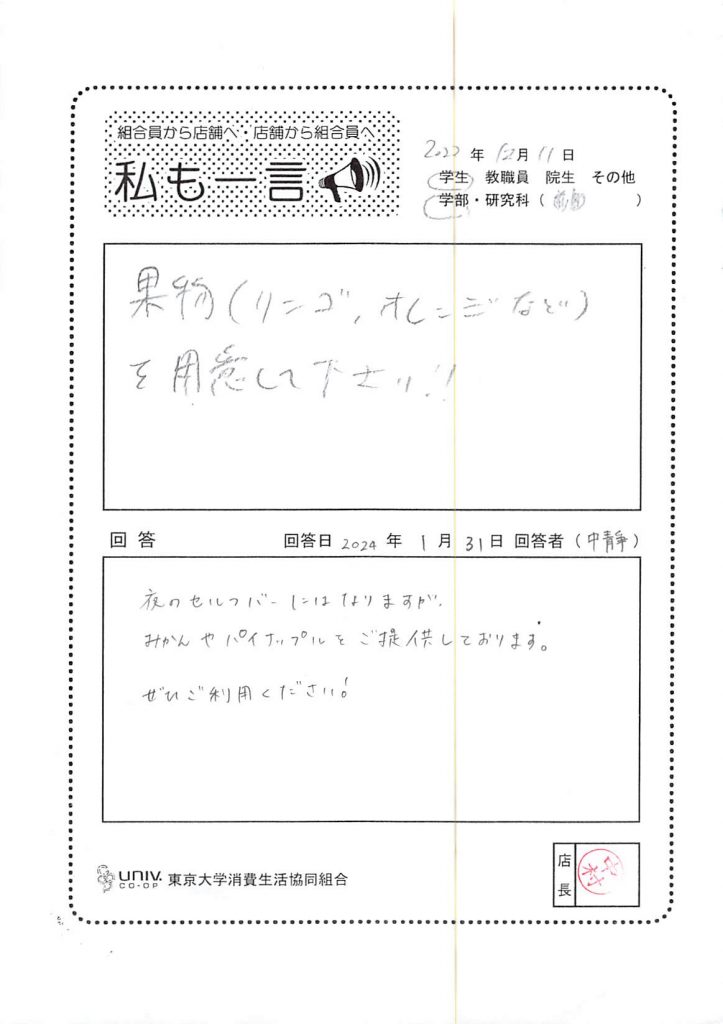 組合員から店舗へ・店舗から組合員へ
私も一言
年 12月11日
学生 教職員 院生 その他
学部・研究科( )
果物(リンゴ, オレンジなど)
を用意して下さい!!
回答 回答日 2024 年 1 月 31 日 回答者 (中靜)
夜のセルフバーにはなりますが、
みかんやパイナップルをご提供しております。
ぜひご利用ください!
UNIV. CO-OP 東京大学消費生活協同組合
店長 中村